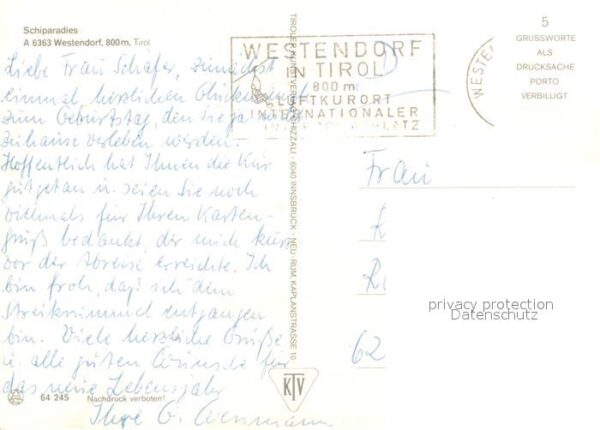 Schiparadies
A 6363 Westendorf, 800 m, Tirol
Liebe Frau Schäfer, zunächst
einmal herzlichen Glückwunsch
zum Geburtstag, den Sie ja
zuhause verleben werden.
Hoffentlich hat Ihnen die Kur
gutgetan u. seien Sie noch
vielmals für Ihren Karten-
gruß bedankt, der mich kurz
vor der Abreise erreichte. Ich
bin froh, daß ich dem
Streikrummel entgangen
bin. Viele herzliche Grüße
u. alle guten Wünsche für
das neue Lebensjahr
Ihre G.
64 245 Nachdruck verboten!
TIROLER KUNSTVERLAG CHIZZALI · 6040 INNSBRUCK - NEU RUM, KAPLANSTRASSE 10
KTV
WESTENDORF
IN TIROL
800 m
LUFTKURORT
INTERNATIONALER
WESTEN
5
GRUSSWORTE
ALS
DRUCKSACHE
PORTO
VERBILLIGT
Frau
62
privacy protection
Datenschutz